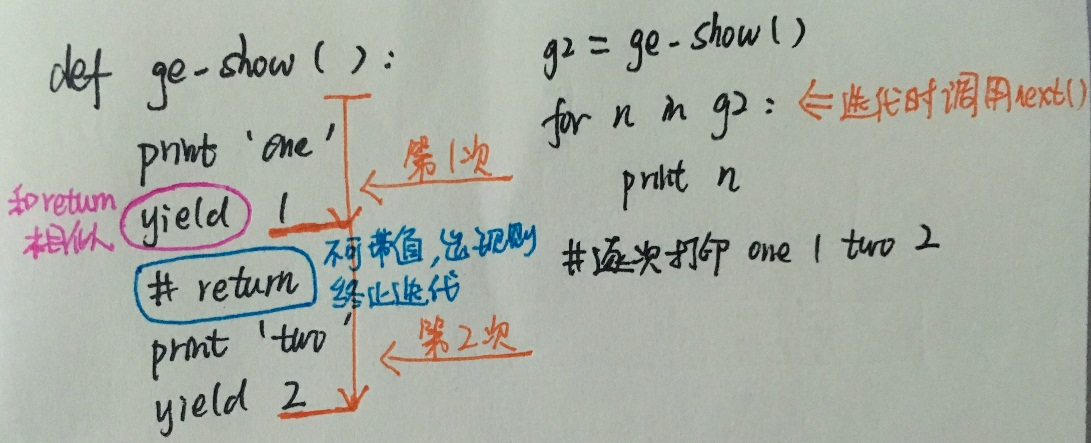 def ge-show():
print 'one'
第1次
和return
相似
yield 1
不可带值,出现则
终止迭代
# return
print 'two'
第2次
yield 2
g2 = ge-show()
for n in g2: ⇐ 迭代时调用next()
print n
#逐次打印 one 1 two 2